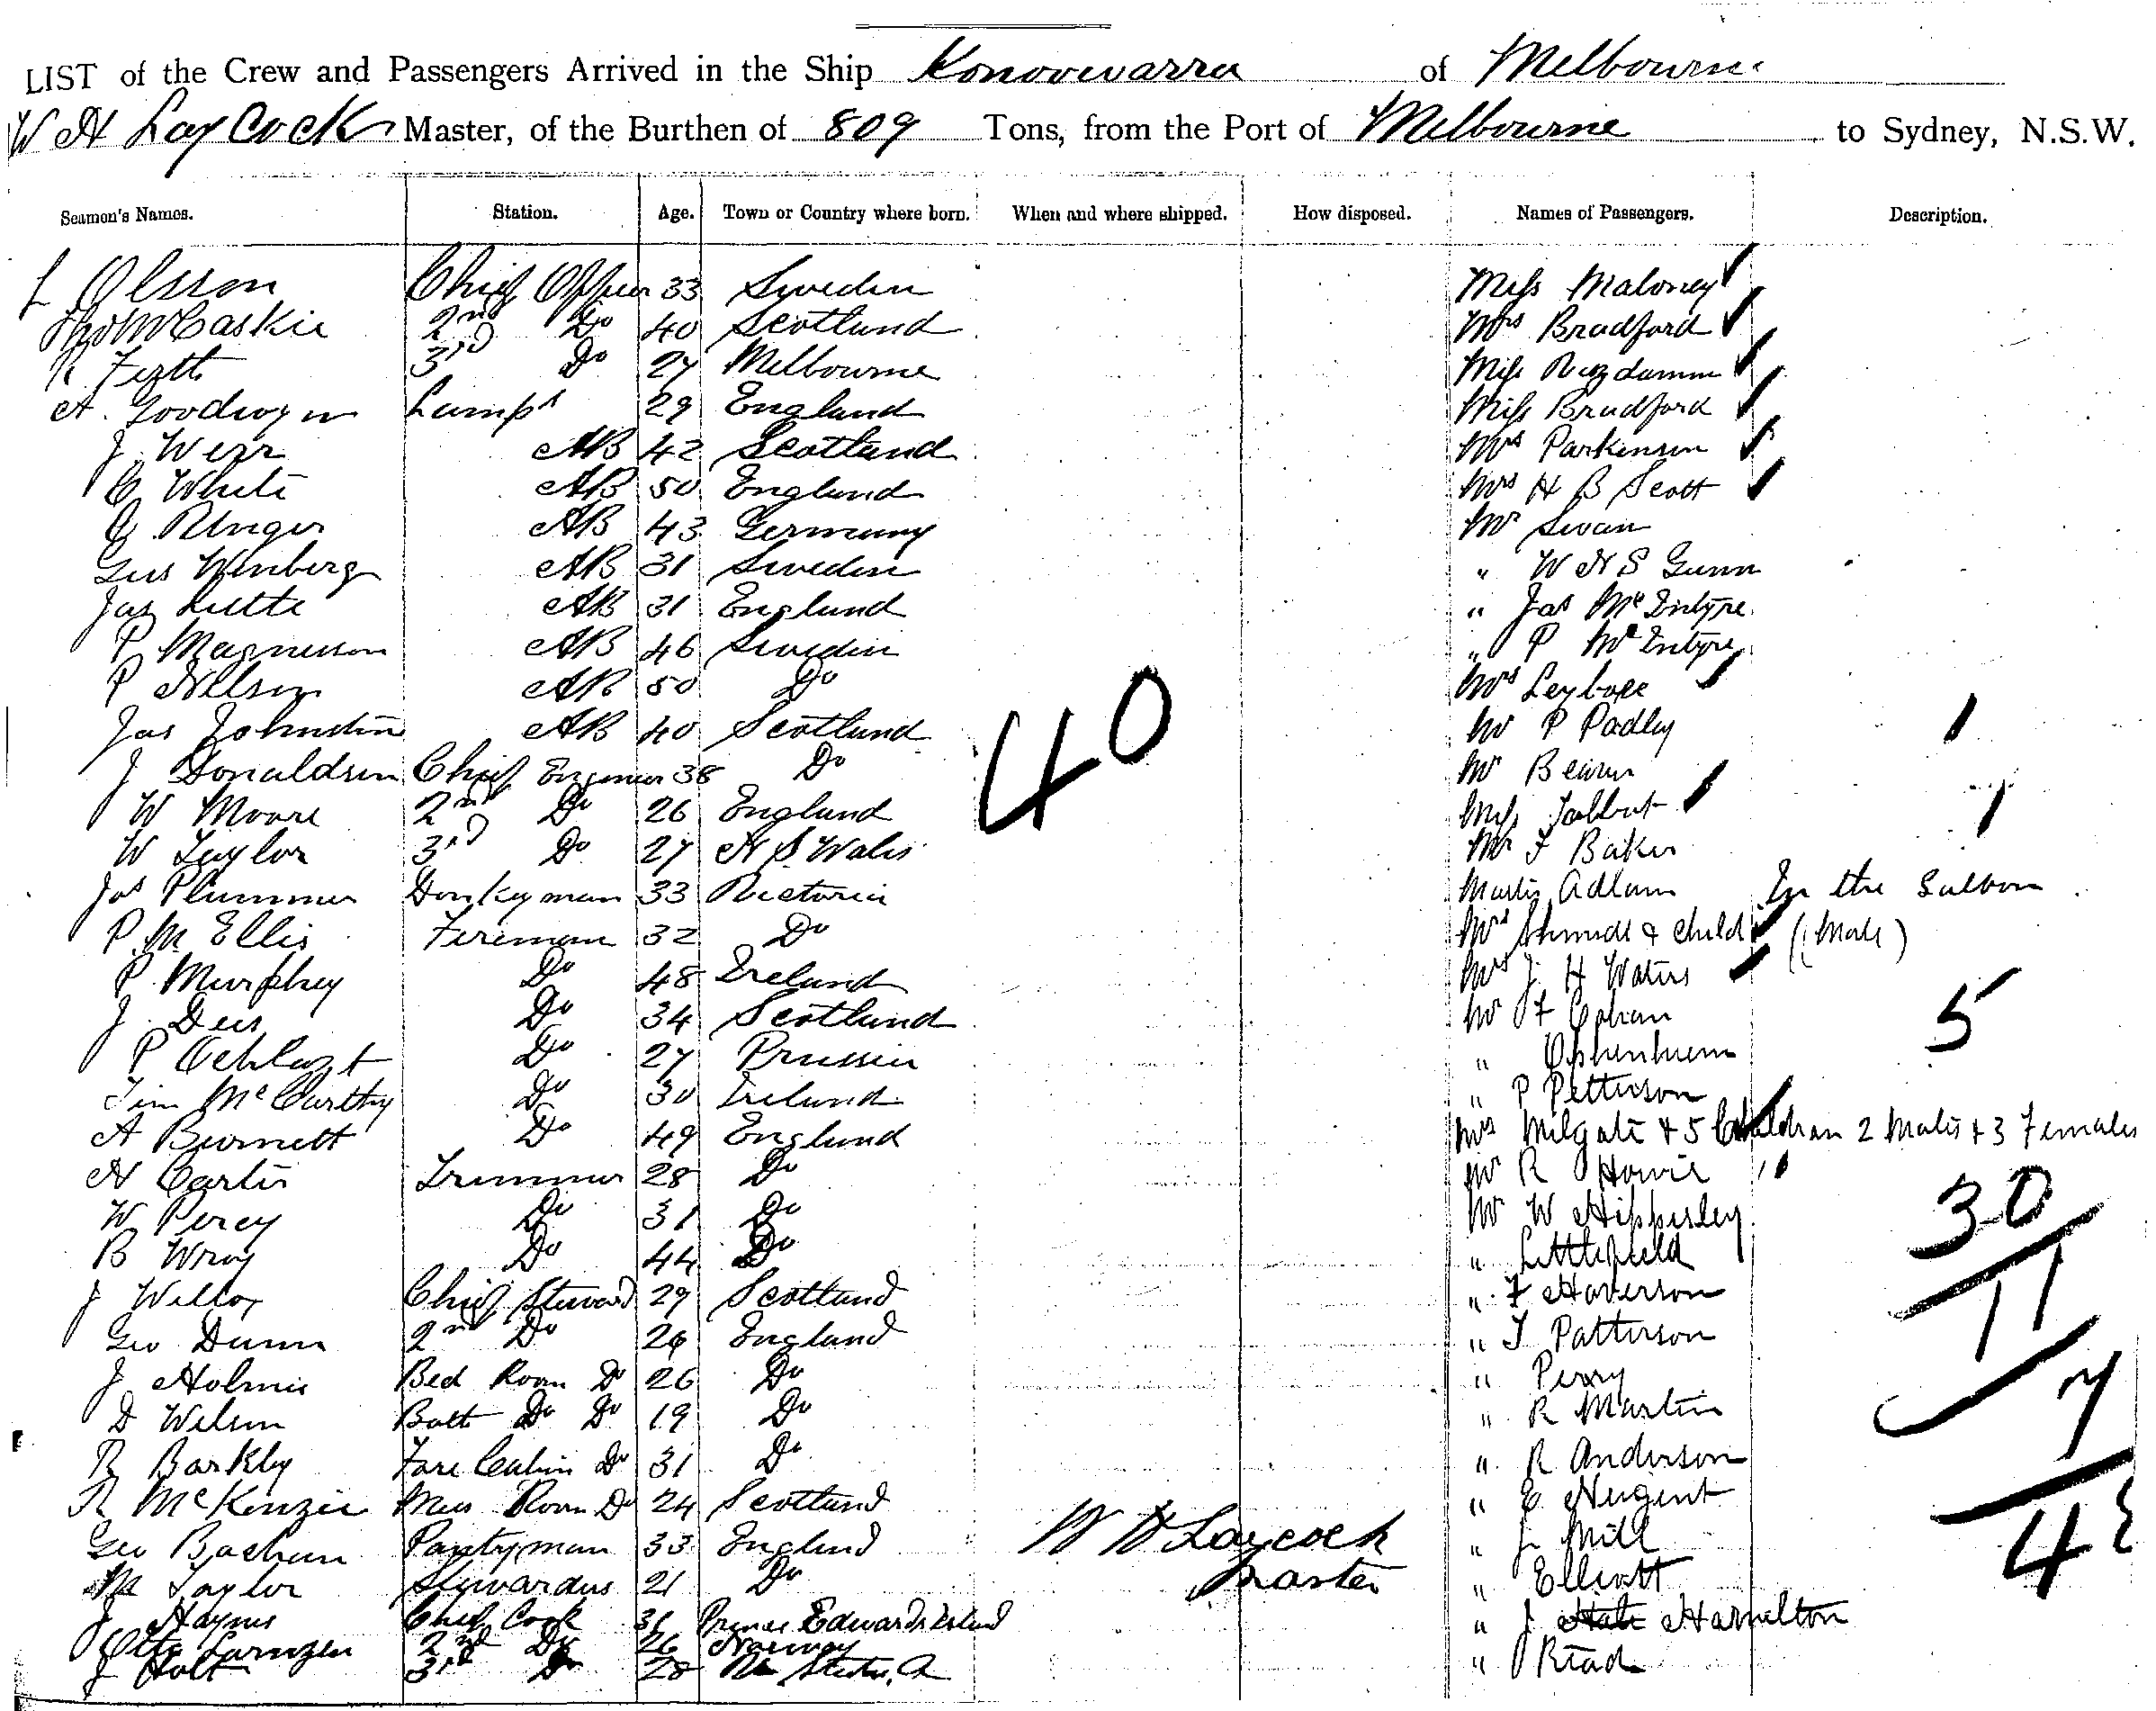 LIST of the Crew and Passengers Arrived in the Ship Konoowarra of Melbourne
W H Laycock Master, of the Burthen of 809 Tons, from the Port of Melbourne to Sydney, N.S.W.
Seamen's Names. Station. Age. Town or Country where born. When and where shipped. How disposed. Names of Passengers. Description.
L Olsson Chief Officer 33 Sweden Miss Maloney
Thos McCaskie 2nd Do 40 Scotland Mrs Bradford
3rd Do 27 Melbourne Miss
A. Goodwyn Lamps 29 England Miss Bradford
J Weir AB 42 Scotland Mrs Parkinson
C White AB 50 England Mrs H B Scott
AB 43 Germany Mr Swan
Gus Winberg AB 31 Sweden " W H S Gunn
Jas AB 31 England " Jas McIntyre
P Magnusson AB 46 Sweden " P McIntyre
P Nelson AB 50 Do Mrs
Jas Johnston AB 40 Scotland Mr P Padley
J Donaldson Chief Engineer 38 Do Mr
40
W Moore 2nd Do 26 England Miss Talbut
W Taylor 3rd Do 27 N S Wales Mr F Baker
Jas Plummer Donkeyman 33 Victoria Adlam In the Saloon
P M Ellis Fireman 32 Do Mrs Shmidt & Child (1 Male)
P Murphey Do 48 Ireland Mrs J H Waters
J Do 34 Scotland Mr F
5
P Do 27 Prussia "
Tim McCarthy Do 30 Ireland " P Petterson
A Burnett Do 49 England Mrs Milgate & 5 Children 2 Males & 3 Females
H Carter Trimmer 28 Do Mr R Howie
W Percy Do 31 Do Mr W Hippisley
30
B Wray Do 44 Do " Littlefield
11
J Wilcox Chief Steward 29 Scotland " F Haverson
Geo Dunn 2nd Do 26 England " T Patterson
J Holmes Bed Room Do 26 Do " Perry
7
D Wilson Do Do 19 Do " R Martin
R Barkly Fore Cabin Do 31 Do " R Anderson
R McKenzie Mess Room Do 24 Scotland " E Nugent
Geo Pantryman 33 England W H Laycock " J Mill
4
M Taylor Stewardess 21 Do Master " Elliott
J Haynes Chief Cook 31 Prince Edwards Island " J Hamilton
Otto Larnzen 2nd Do 26 Norway " Read
J Holt 3rd Do 28